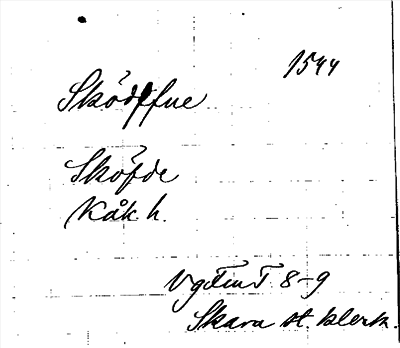 1544
Sködffue
Sköfde
Kåk h.
VgFmT 8-9
Skara st. klerk.